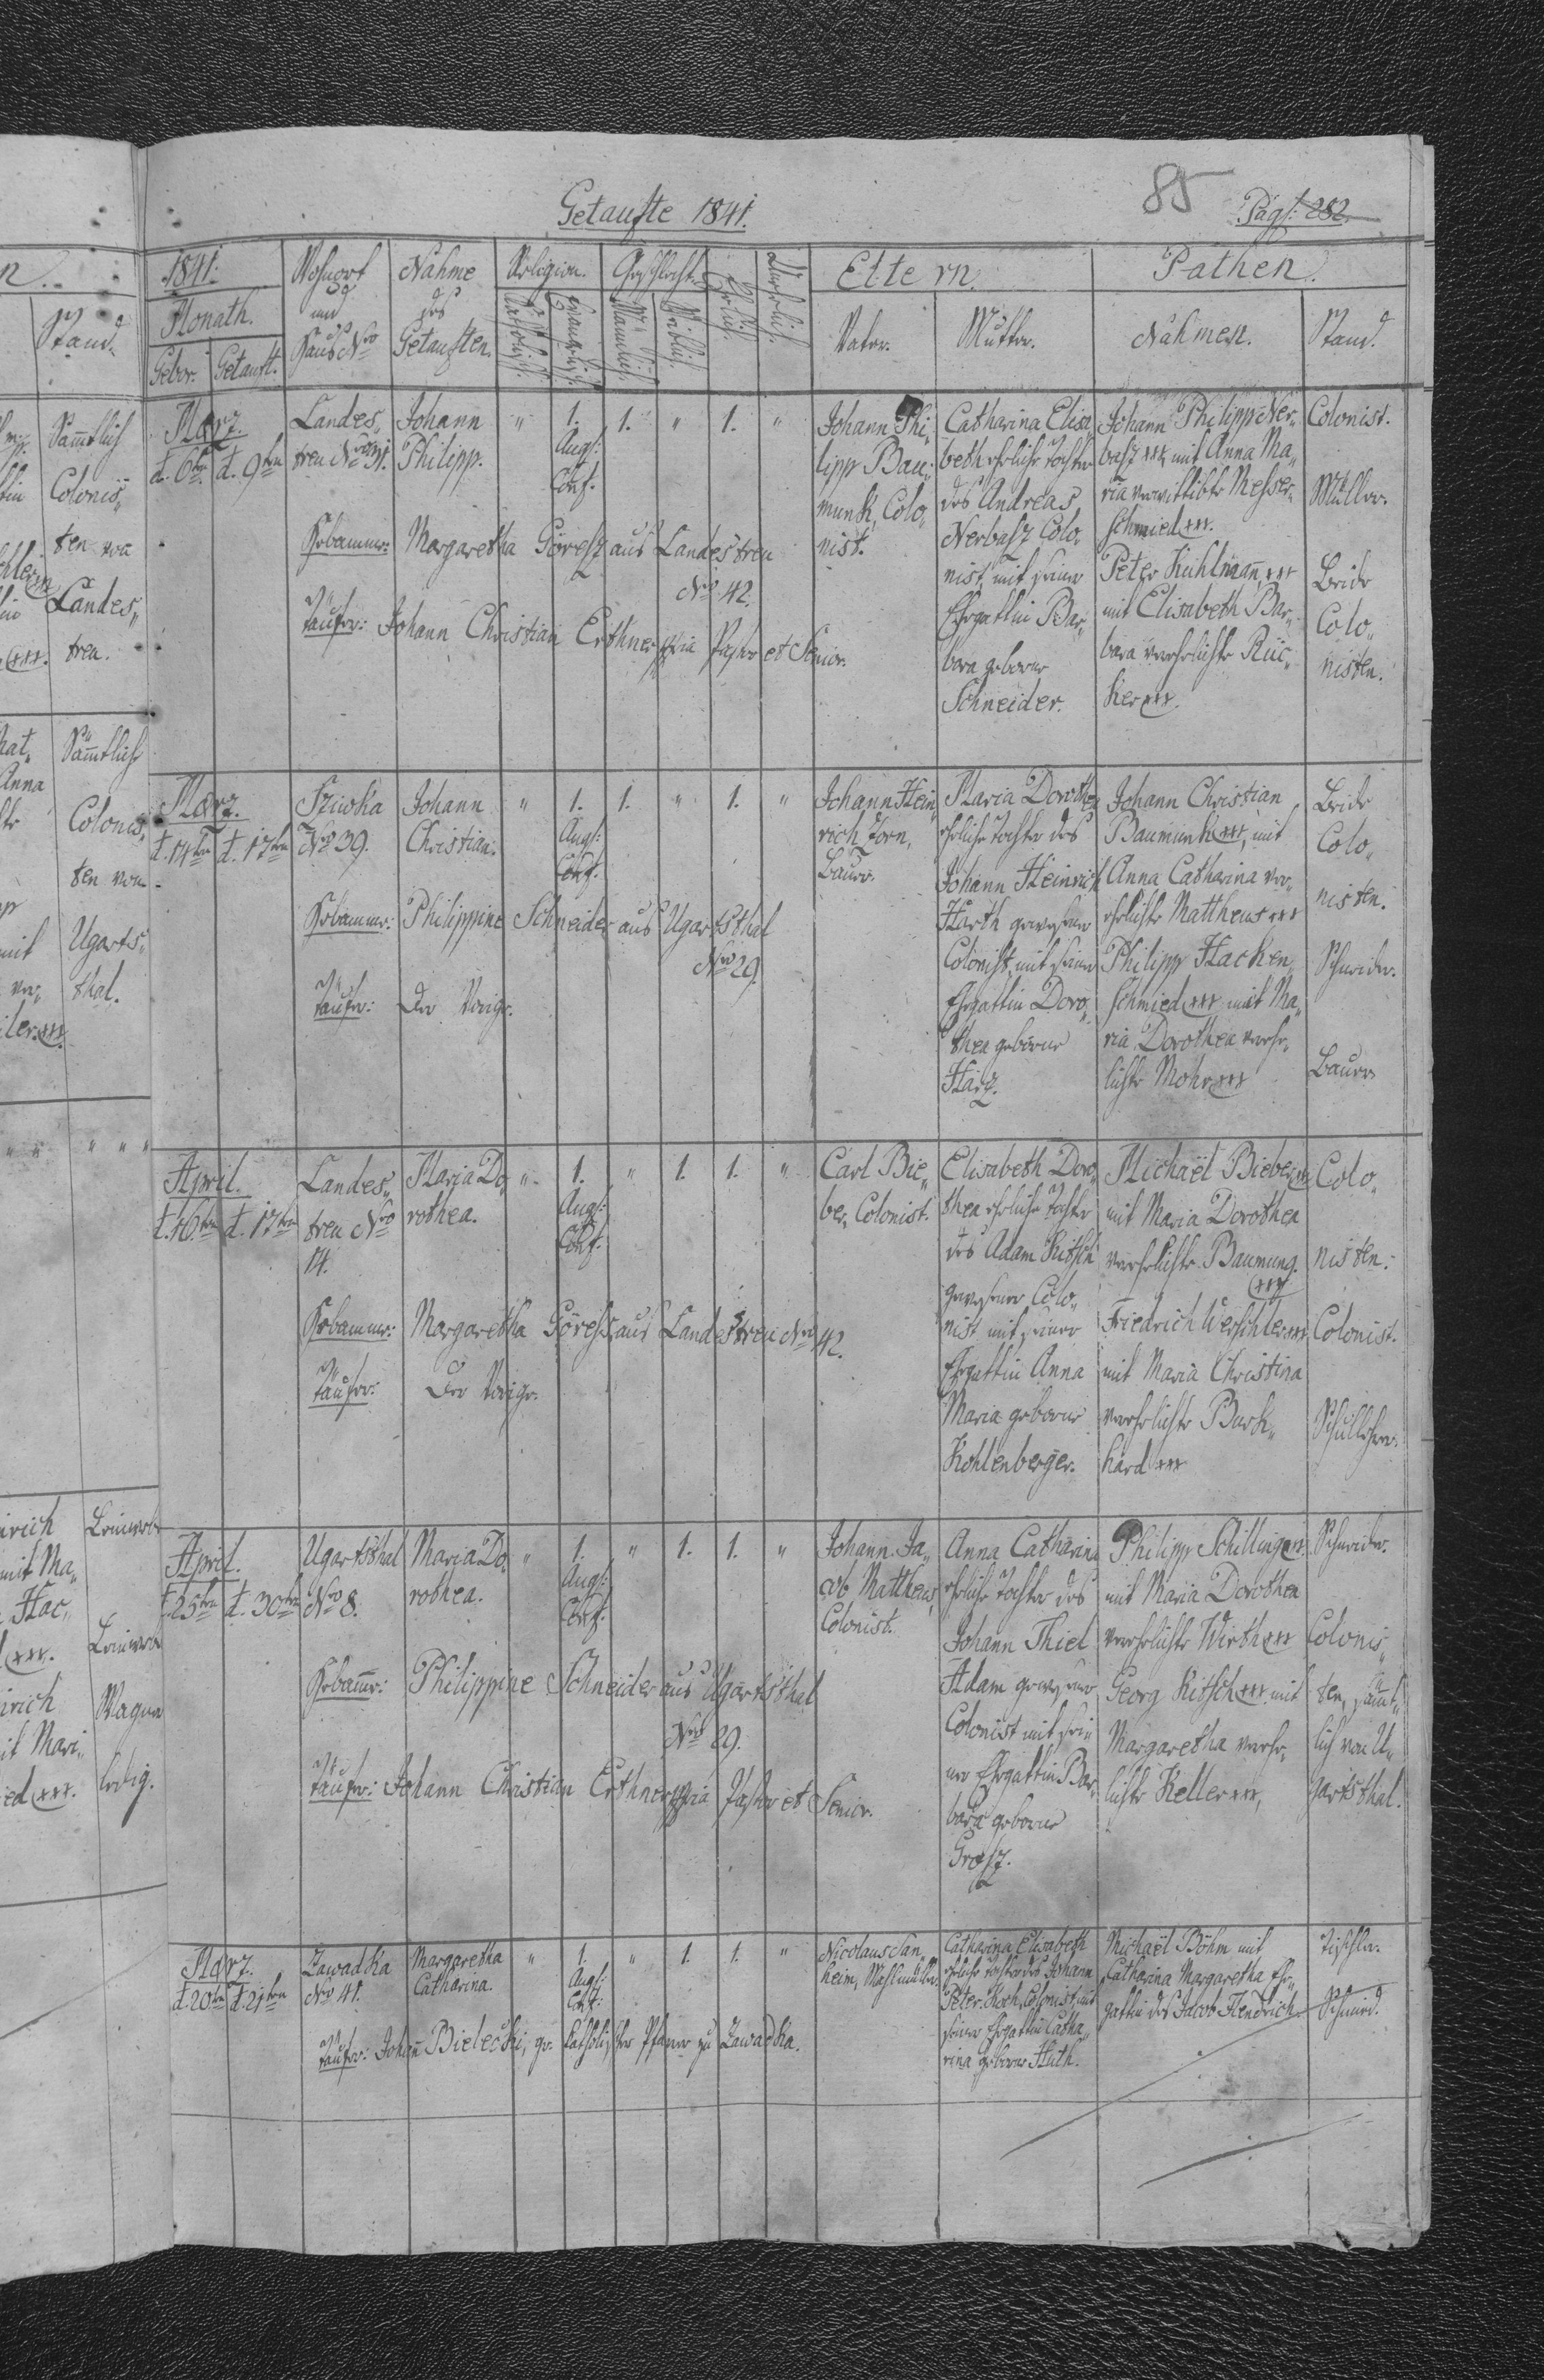 n.
Stand.
Sämtlich
Colonis„
ten von
Landes„
treu.
Sämtlich
Colonis„
ten von
Ugarts„
thal.
Anna
mit
nrich
mit Ma„
Hac„
Wagner
ledig.
Getaufte 1841.
85
Pag: 282.
1841.
Monath.
Gebor. Getauft.
Wohnort
und
Haus Nro
Nahme
des
Getauften.
Religion.
Katholisch.
Evangelisch.
Geschlecht.
Männlich.
Weiblich.
Ehelich.
Unehelich.
Eltern.
Vater.
Mutter.
Pathen.
Nahmen.
Stand.
März.
d. 6ten d. 9ten
Landes„
treu Nro 31.
Johann
Philipp.
" 1. 1. " 1. "
Augs:
Conf.
Johann Phi„
lipp Bau„
munk, Colo„
nist.
Catharina Elisa
beth eheliche Tochter
des Andreas
Nerbasz Colo„
nist, mit seiner
Ehegattin Bar„
bara geborne
Schneider.
Johann Philipp Ner„
basz xxx mit Anna Ma„
ria verwittibte Messer„
schmied xxx.
Peter Kuhlmann xxx
mit Elisabeth Bar„
bara verehelichte Rüc„
ker xxx.
Colonist.
Müller.
Beide
Colo„
nisten.
Hebamme: Margaretha Göresz aus Landestreu
Nro 42.
Taufer: Johann Christian Erthner mpria Pastor et Senior.
März.
d. 14ten d. 17ten
Sziwka
Nro 39.
Johann
Christian.
" 1. 1. " 1. "
Augs:
Conf.
Johann Hein„
rich Zorn,
Bauer.
Maria Dorothea
eheliche Tochter des
Johann Heinrich
Harth gewesener
Colonist mit seiner
Ehegattin Doro„
thea geborne
Harz.
Johann Christian
Baumunk xxx, mit
Anna Catharina ver„
ehelichte Mattheus xxx
Philipp Hacken„
schmied xxx mit Ma„
ria Dorothea verehe„
lichte Mohr xxx
Beide
Colo„
nisten.
Schneider.
Bauer.
Hebamme: Philippine Schneider aus Ugartsthal
Nro 29.
Taufer: Der Vorige.
April.
d. 16ten d. 17ten
Landes„
treu Nro
14.
Maria Do„
rothea.
" 1. " 1. 1. "
Augs:
Conf.
Carl Bie„
ber, Colonist.
Elisabeth Doro„
thea eheliche Tochter
des Adam Kitsch
gewesener Colo„
nist mit seiner
Ehegattin Anna
Maria geborne
Kohlenberger.
Michaël Bieber xxx
mit Maria Dorothea
verehelichte Baumung
xxx
Friedrich Werschler xxx
mit Maria Christina
verehelichte Burk„
hard xxx
Colo„
nisten.
Colonist.
Schullehrer.
Hebamme: Margaretha Göresz aus Landestreu Nro 42.
Taufer: Der Vorige.
April.
d. 25ten d. 30ten
Ugartsthal
Nro 8.
Maria Do„
rothea.
" 1. " 1. 1. "
Augs:
Conf.
Johann Ja„
cob Mattheus,
Colonist.
Anna Catharina
eheliche Tochter des
Johann Thiel
Adam gewesener
Colonist mit sei„
ner Ehegattin Bar„
bara geborne
Grosz.
Philipp Schilling xxx
mit Maria Dorothea
verehelichte Wirth xxx
Georg Kitsch xxx mit
Margaretha verehe„
lichte Keller xxx,
Schneider.
Colonis„
ten, sämt„
lich von U„
gartsthal.
Hebamme: Philippine Schneider aus Ugartsthal
Nro 29.
Taufer: Johann Christian Erthner mpria Pastor et Senior.
März.
d. 20ten d. 21ten
Zawadka
Nro 41.
Margaretha
Catharina.
" 1. " 1. 1. "
Augs:
Conf:
Nicolaus San„
heim, Mahlmüller.
Catharina Elisabeth
eheliche Tochter des Johann
Peter Koch, Colonist, mit
seiner Ehegattin Catha„
rina geborne Huth.
Michaël Böhm mit
Catharina Margaretha Ehe„
gattin des Jacob Hendrich
Tischler.
Schmied.
Taufer: Johann Bielecki, gr. katholischer Pfarrer zu Zawadka.